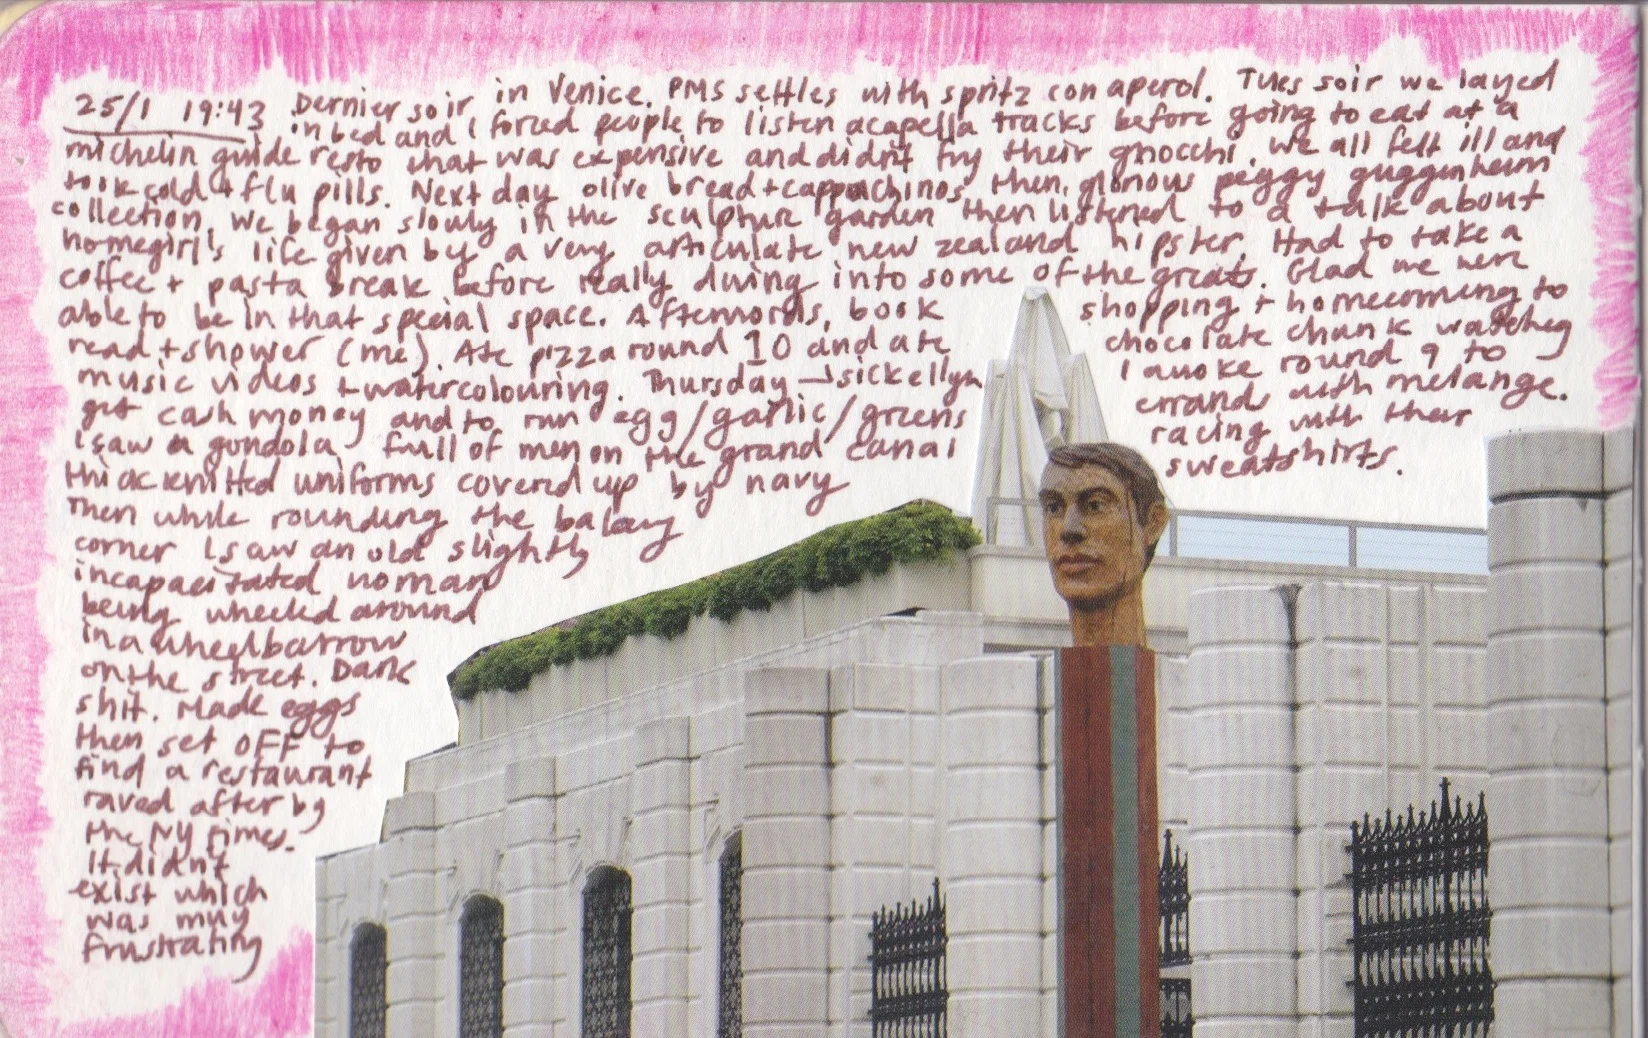 25/1 19:43 Dernier soir in Venice. PMS settles with spritz con aperol. Tues soir we layed
in bed and I forced people to listen acapella tracks before going to eat at a
michelin guide resto that was expensive and didn't try their gnocchi. We all felt ill and
took cold + flu pills. Next day olive bread + cappuchinos, then, glorious peggy guggenheim
collection. We began slowly in the sculpture garden then listened to a talk about
homegirl's life given by a very articulate new zealand hipster. Had to take a
coffee + pasta break before really diving into some of the greats. Glad we were
able to be in that special space. Afterwards, book shopping + homecoming to
read + shower (me). Ate pizza round 10 and ate chocolate chunk watching
music videos + watercolouring. Thursday → sickellyn I awoke round 9 to
get cash money and to run egg/garlic/greens errands with melange.
I saw a gondola full of men on the grand canal racing with their
thick knitted uniforms covered up by navy sweatshirts.
Then while rounding the
corner I saw an old slightly
incapacitated woman
being wheeled around
in a wheelbarrow
on the street. Dark
shit. Made eggs
then set OFF to
find a restaurant
raved after by
the NY times.
It didn't
exist which
was muy
frustrating